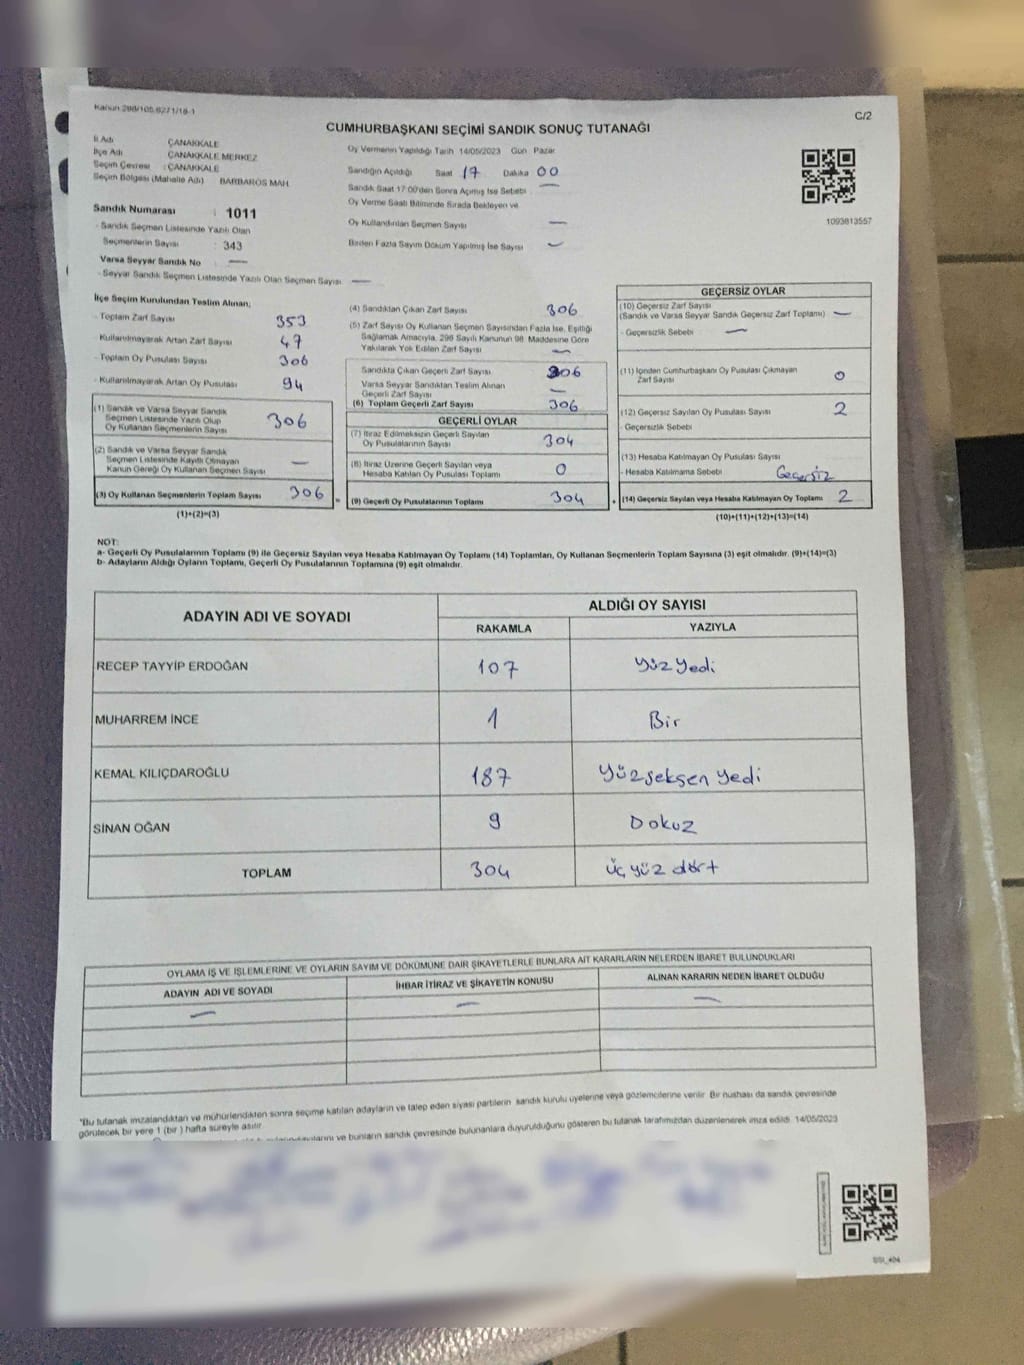 Kanun 298/105,6271/18-1
C/2
CUMHURBAŞKANI SEÇİMİ SANDIK SONUÇ TUTANAĞI
İl Adı : ÇANAKKALE
İlçe Adı : ÇANAKKALE MERKEZ
Seçim Çevresi : ÇANAKKALE
Seçim Bölgesi (Mahalle Adı) BARBAROS MAH.
Sandık Numarası : 1011
- Sandık Seçmen Listesinde Yazılı Olan
Seçmenlerin Sayısı : 343
Varsa Seyyar Sandık No —
- Seyyar Sandık Seçmen Listesinde Yazılı Olan Seçmen Sayısı —
Oy Vermenin Yapıldığı Tarih 14/05/2023 Gün Pazar
Sandığın Açıldığı Saat 17 Dakika 00
Sandık Saat 17:00'den Sonra Açmış İse Sebebi —
Oy Verme Saati Bitiminde Sırada Bekleyen ve
Oy Kullandırılan Seçmen Sayısı —
Birden Fazla Sayım Döküm Yapılmış İse Sayısı —
1093813557
İlçe Seçim Kurulundan Teslim Alınan;
- Toplam Zarf Sayısı 353
- Kullanılmayarak Artan Zarf Sayısı 47
- Toplam Oy Pusulası Sayısı 306
- Kullanılmayarak Artan Oy Pusulası 94
(1) Sandık ve Varsa Seyyar Sandık
Seçmen Listesinde Yazılı Olup
Oy Kullanan Seçmenlerin Sayısı 306
(2) Sandık ve Varsa Seyyar Sandık
Seçmen Listesinde Kayıtlı Olmayan
Kanun Gereği Oy Kullanan Seçmen Sayısı —
(3) Oy Kullanan Seçmenlerin Toplam Sayısı 306
(1)+(2)=(3)
(4) Sandıktan Çıkan Zarf Sayısı 306
(5) Zarf Sayısı Oy Kullanan Seçmen Sayısından Fazla İse, Eşitliği
Sağlamak Amacıyla, 298 Sayılı Kanunun 98. Maddesine Göre
Yakılarak Yok Edilen Zarf Sayısı —
Sandıkta Çıkan Geçerli Zarf Sayısı 306
Varsa Seyyar Sandıktan Teslim Alınan
Geçerli Zarf Sayısı —
(6) Toplam Geçerli Zarf Sayısı 306
GEÇERLİ OYLAR
(7) İtiraz Edilmeksizin Geçerli Sayılan
Oy Pusulalarının Sayısı 304
(8) İtiraz Üzerine Geçerli Sayılan veya
Hesaba Katılan Oy Pusulası Toplamı 0
= (9) Geçerli Oy Pusulalarının Toplamı 304
GEÇERSİZ OYLAR
(10) Geçersiz Zarf Sayısı
(Sandık ve Varsa Seyyar Sandık Geçersiz Zarf Toplamı) —
- Geçersizlik Sebebi —
(11) İçinden Cumhurbaşkanı Oy Pusulası Çıkmayan
Zarf Sayısı 0
(12) Geçersiz Sayılan Oy Pusulası Sayısı 2
- Geçersizlik Sebebi
(13) Hesaba Katılmayan Oy Pusulası Sayısı
- Hesaba Katılmama Sebebi Geçersiz
+ (14) Geçersiz Sayılan veya Hesaba Katılmayan Oy Toplamı 2
(10)+(11)+(12)+(13)=(14)
NOT:
a- Geçerli Oy Pusulalarının Toplamı (9) ile Geçersiz Sayılan veya Hesaba Katılmayan Oy Toplamı (14) Toplamları, Oy Kullanan Seçmenlerin Toplam Sayısına (3) eşit olmalıdır. (9)+(14)=(3)
b- Adayların Aldığı Oyların Toplamı, Geçerli Oy Pusulalarının Toplamına (9) eşit olmalıdır.
ADAYIN ADI VE SOYADI ALDIĞI OY SAYISI
RAKAMLA YAZIYLA
RECEP TAYYİP ERDOĞAN 107 Yüz Yedi
MUHARREM İNCE 1 Bir
KEMAL KILIÇDAROĞLU 187 Yüzseksen yedi
SİNAN OĞAN 9 Dokuz
TOPLAM 304 Üç yüz dört
OYLAMA İŞ VE İŞLEMLERİNE VE OYLARIN SAYIM VE DÖKÜMÜNE DAİR ŞİKAYETLERLE BUNLARA AİT KARARLARIN NELERDEN İBARET BULUNDUKLARI
ADAYIN ADI VE SOYADI İHBAR İTİRAZ VE ŞİKAYETİN KONUSU ALINAN KARARIN NEDEN İBARET OLDUĞU
— — —
*Bu tutanak imzalandıktan ve mühürlendikten sonra seçime katılan adayların ve talep eden siyasi partilerin sandık kurulu üyelerine veya gözlemcilerine verilir. Bir nüshası da sandık çevresinde
görülecek bir yere 1 (bir ) hafta süreyle asılır.
ve bunların sandık çevresinde bulunanlara duyurulduğunu gösteren bu tutanak tarafımızdan düzenlenerek imza edildi. 14/05/2023